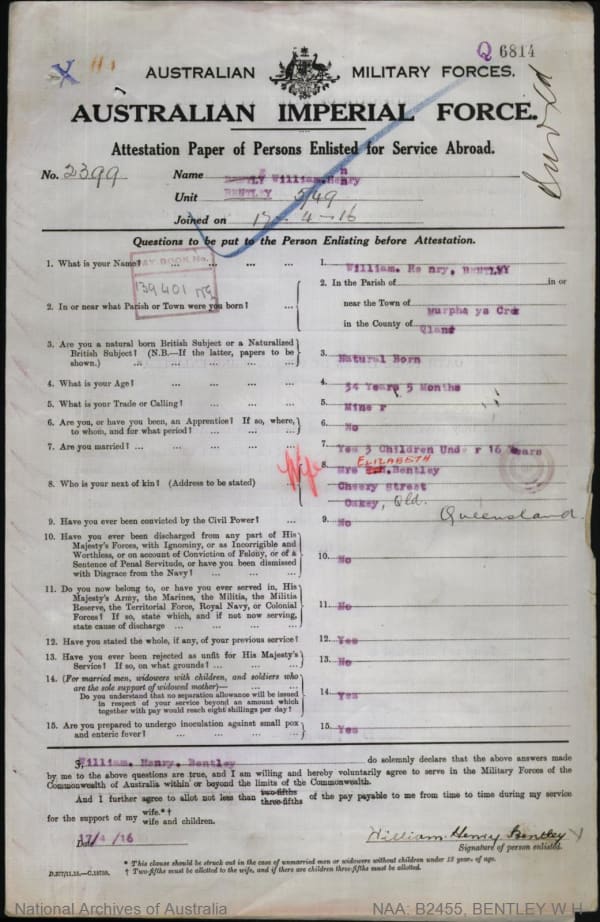 Q 6814
AUSTRALIAN MILITARY FORCES.
AUSTRALIAN IMPERIAL FORCE.
Attestation Paper of Persons Enlisted for Service Abroad.
No. 2399 Name William Henry
Unit BENTLEY 5/49
Joined on 17-4-16
Questions to be put to the Person Enlisting before Attestation.
1. What is your Name? ... ... ... ... 1. William. He nry, BENTLEY
PAY BOOK No.
139401
2. In or near what Parish or Town were you born? ... 2. In the Parish of in or
near the Town of Murpha ys Cre
in the County of Qland
3. Are you a natural born British Subject or a Naturalized
British Subject? (N.B.—If the latter, papers to be
shown.) ... ... ... ... 3. Natural Born
4. What is your Age? ... ... ... ... 4. 34 Years 5 Months
5. What is your Trade or Calling? ... ... ... 5. Mine r
6. Are you, or have you been, an Apprentice? If so, where,
to whom, and for what period? ... ... ... 6. No
7. Are you married? ... ... ... ... 7. Yes 3 Children Unde r 16 Years
Wife
8. Who is your next of kin? (Address to be stated) 8. Mrs ELIZABETH Bentley
Cheery Street
Oakey, Qld.
Queensland
9. Have you ever been convicted by the Civil Power? ... 9. No
10. Have you ever been discharged from any part of His
Majesty's Forces, with Ignominy, or as Incorrigible and
Worthless, or on account of Conviction of Felony, or of a
Sentence of Penal Servitude, or have you been dismissed
with Disgrace from the Navy? ... ... ... 10. No
11. Do you now belong to, or have you ever served in, His
Majesty's Army, the Marines, the Militia, the Militia
Reserve, the Territorial Force, Royal Navy, or Colonial
Forces? If so, state which, and if not now serving,
state cause of discharge ... ... ... 11. No
12. Have you stated the whole, if any, of your previous service? 12. Yes
13. Have you ever been rejected as unfit for His Majesty's
Service? If so, on what grounds? ... ... ... 13. No
14. (For married men, widowers with children, and soldiers who
are the sole support of widowed mother)—
Do you understand that no separation allowance will be issued
in respect of your service beyond an amount which
together with pay would reach eight shillings per day? 14. Yes
15. Are you prepared to undergo inoculation against small pox
and enteric fever? ... ... ... ... 15. Yes
I, William. Henry. Bentley do solemnly declare that the above answers made
by me to the above questions are true, and I am willing and hereby voluntarily agree to serve in the Military Forces of the
Commonwealth of Australia within or beyond the limits of the Commonwealth.
And I further agree to allot not less than two-fifths three-fifths of the pay payable to me from time to time during my service
for the support of my wife.*† wife and children.
Date 17/4/16 William Henry Bentley
Signature of person enlisted.
* This clause should be struck out in the case of unmarried men or widowers without children under 18 years of age.
† Two-fifths must be allotted to the wife, and if there are children three-fifths must be allotted.
National Archives of Australia NAA: B2455, BENTLEY W H